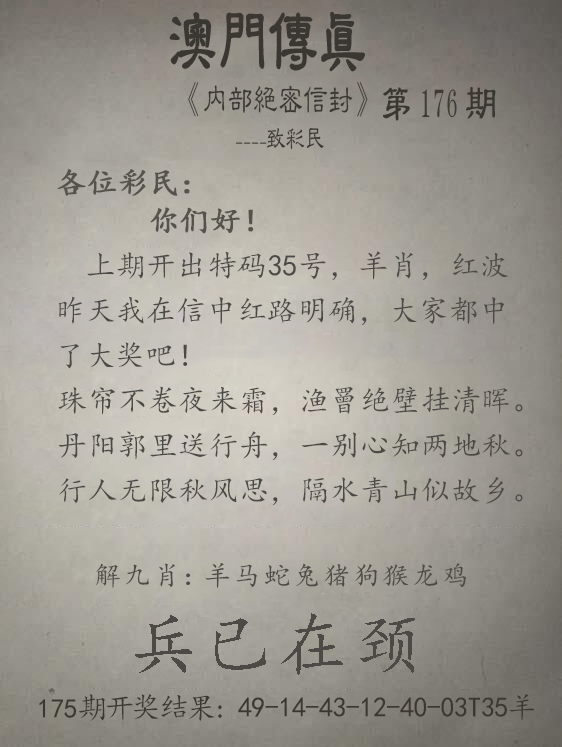 澳門傳真
《内部絕密信封》第176期
----致彩民
各位彩民：
你们好！
上期开出特码35号，羊肖，红波
昨天我在信中红路明确，大家都中
了大奖吧！
珠帘不卷夜来霜，渔罾绝壁挂清晖。
丹阳郭里送行舟，一别心知两地秋。
行人无限秋风思，隔水青山似故乡。
解九肖：羊马蛇兔猪狗猴龙鸡
兵已在颈
175期开奖结果：49-14-43-12-40-03T35羊